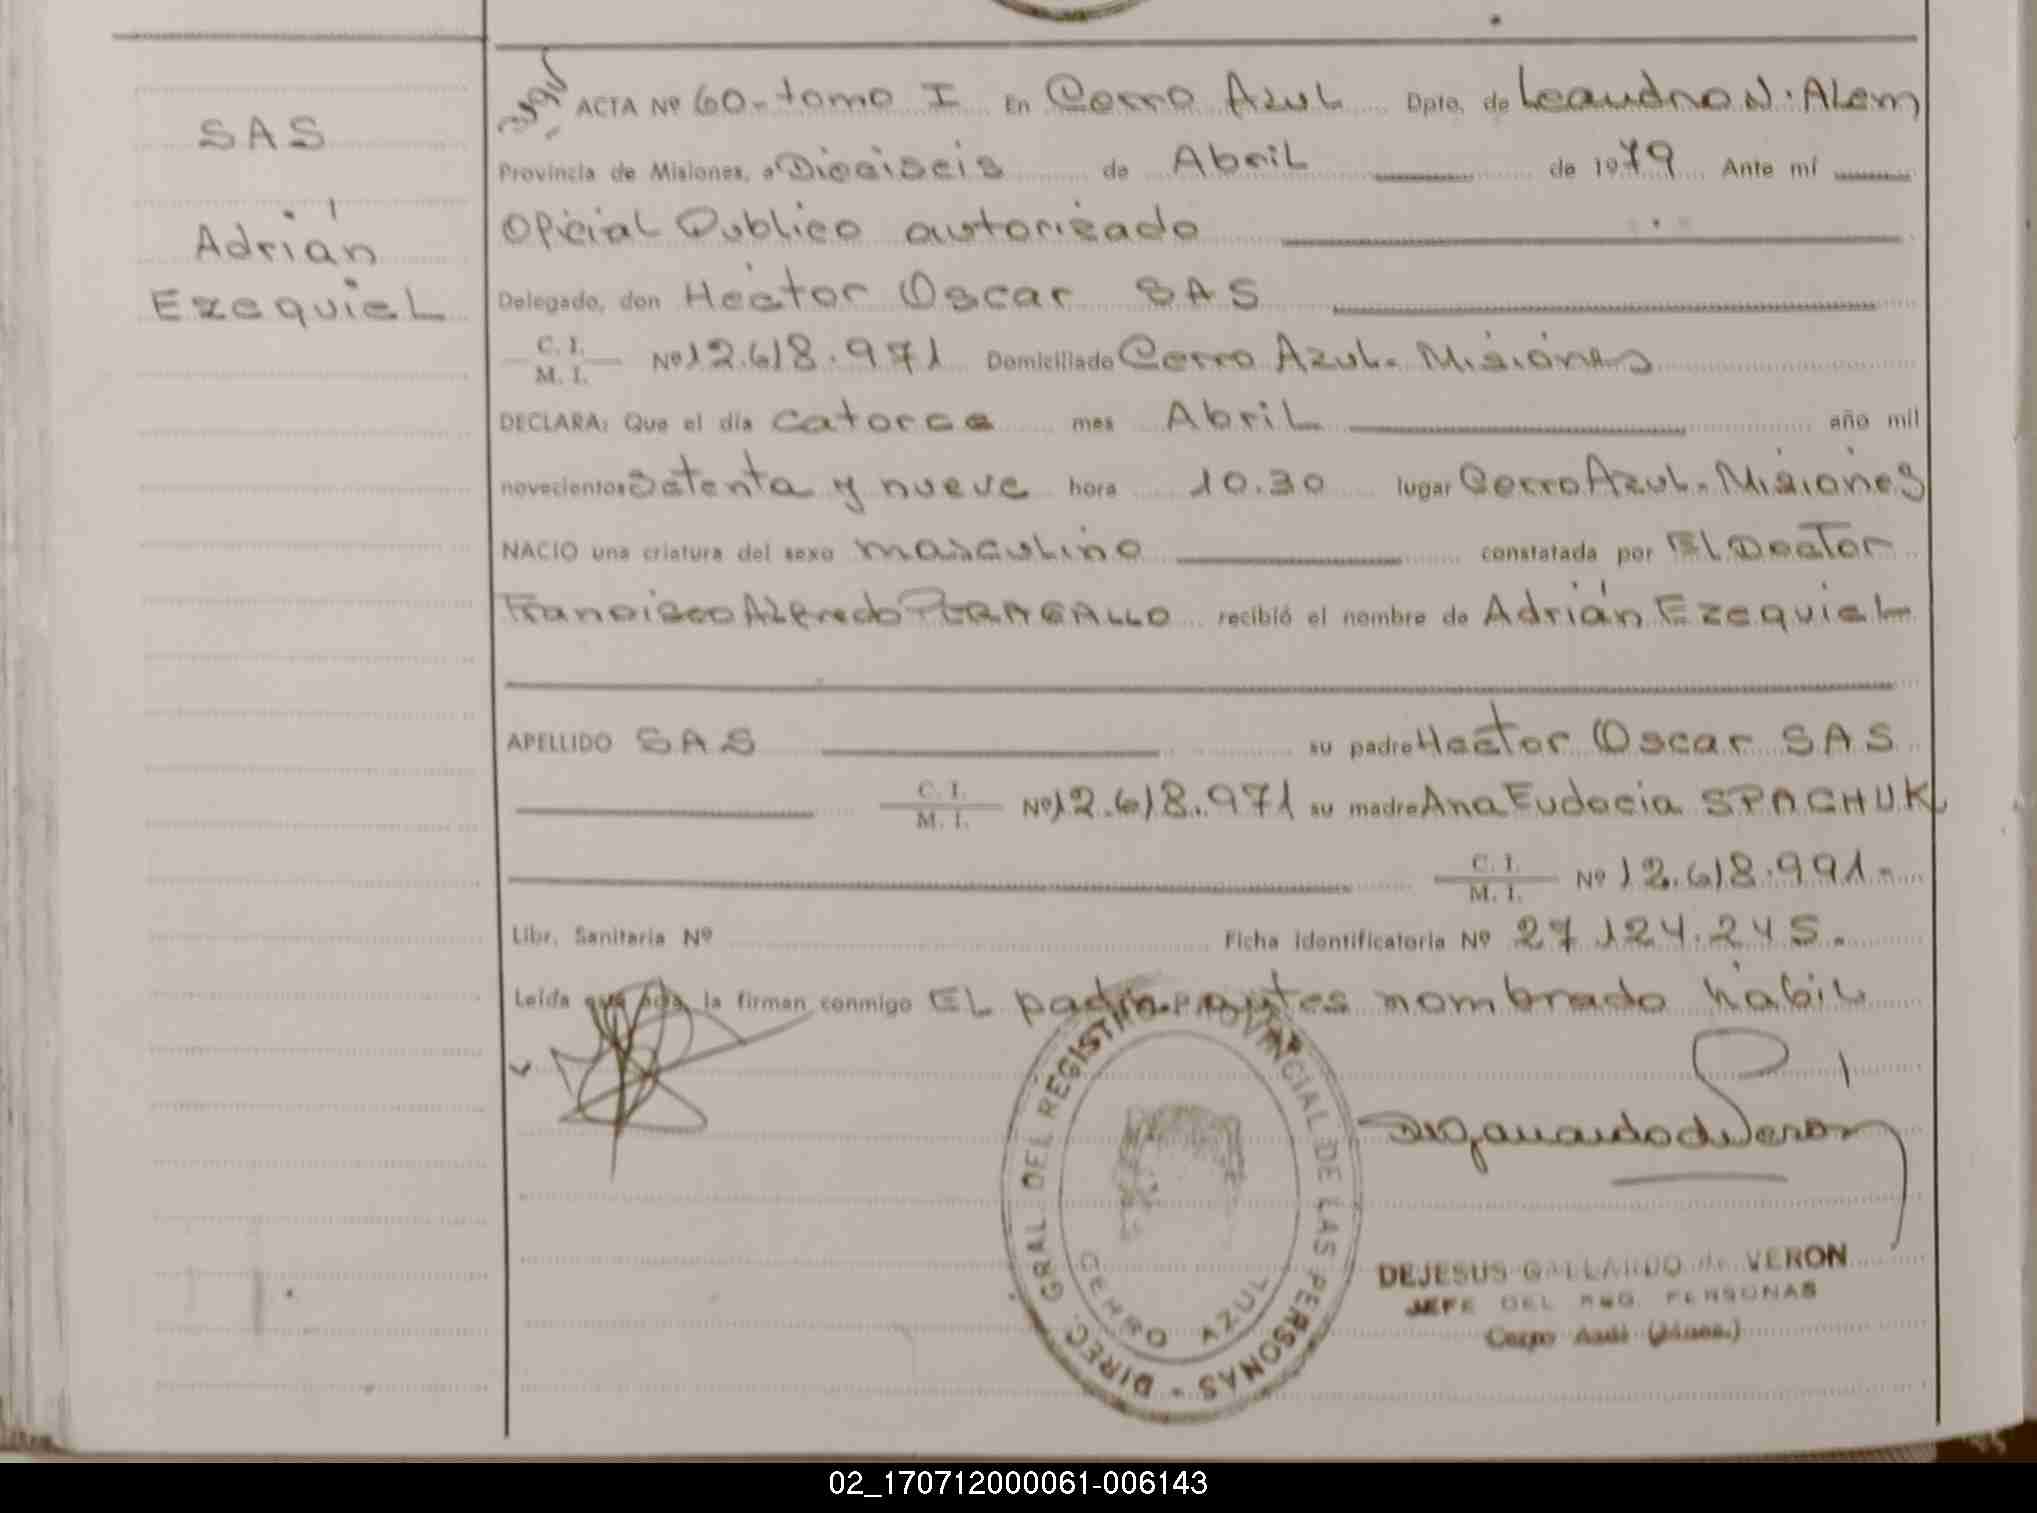 SAS
Adrián
Ezequiel
ACTA Nº 60-tomo I En Cerro Azul Dpto. de Leandro N. Alem
Provincia de Misiones, a Dieciseis de Abril de 1979 Ante mí
Oficial Publico autorizado
Delegado, don Hector Oscar SAS
C. I.
M. I. Nº 12.618.971 Domiciliado Cerro Azul - Misiones
DECLARA: Que el día catorce mes Abril año mil
novecientos setenta y nueve hora 10.30 lugar Cerro Azul - Misiones
NACIO una criatura del sexo masculino constatada por El Doctor
Francisco Alfredo PERAGALLO recibió el nombre de Adrián Ezequiel
APELLIDO SAS su padre Hector Oscar SAS
C. I.
M. I. Nº 12.618.971 su madre Ana Eudocia SPACHUK
C. I.
M. I. Nº 12.618.991.-
Libr. Sanitaria Nº Ficha identificatoria Nº 27.124.245.
Leída que la firman conmigo El padre antes nombrado habil
DIREC. GRAL DEL REGISTRO PROVINCIAL DE LAS PERSONAS -
CERRO AZUL
DEJESUS GALLARDO de VERON
JEFE DEL REG. PERSONAS
Cerro Azul (Mnes.)
02_170712000061-006143